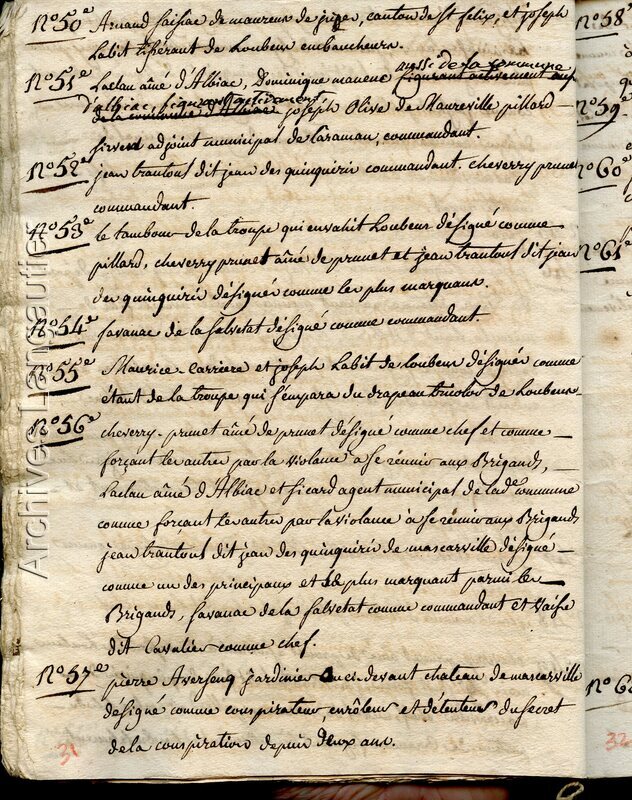 N.o 50.e Arnaud saissac de maurens de juger, canton de St felix, et joseph
Labit tisserant de Loubens embaucheurs.
N.o 51.e Laclau ainé d'Albiac, Dominique maneuc aussi de la commune
d'albiac, figurant activement joseph Olive de Maureville pillard
Sirven adjoint municipal de Caraman, commandant.
N.o 52.e jean trantoul dit jean des quinquiriu commandant. cheverry prunet
commandant.
N.o 53.e le tambour de la troupe qui envahit Loubens désigné comme
pillard, cheverry prunet ainé de prunet et jean trantoul dit jean
des quinquiriu désignés comme les plus marquans.
N.o 54.e savanac de la salvetat désigné comme commandant
N.o 55.e Maurice Carriere et joseph Labit de loubens désignés comme
étant de la troupe qui s'empara du drapeau tricolor de Loubens
N.o 56.e cheverry-prunet ainé de prunet désigné comme chef et comme
forçant les autres par la violance a se réunir aux Brigands,
Laclau ainé d'Albiac et sicard agent municipal de la d.e commune
comme forçant les autres par la violance à se réunir aux Brigands
jean trantoul dit jean des quinquiriu de mascarville désigné
comme un des principaux et le plus marquant parmi les
Brigands, savanac de la salvetat comme commandant et Vaisse
dit Cavalier comme chef.
N.o 57.e pierre Aversenq jardinier au ci-devant chateau de mascarville
désigné comme conspirateur, enrôleur et détenteur du secret
de la conspiration depuis deux ans.
31
N.o 58.e
N.o 59.e
N.o 60.e
N.o 61.e
N.o 6
32
Archives Lanquetin